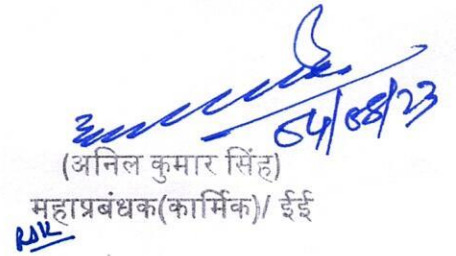 04/08/23
(अनिल कुमार सिंह)
महाप्रबंधक(कार्मिक)/ ईई